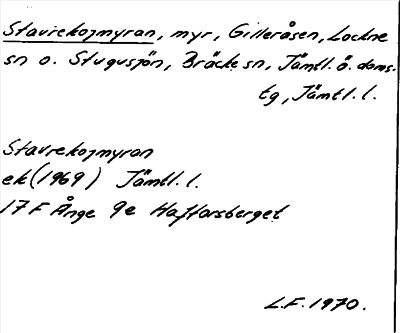 Stavrekojmyran, myr, Gilleråsen, Lockne
sn o. Stugusjön, Bräcke sn, Jämtl. ö. doms.
tg, Jämtl. l.
Stavrekojmyran
ek (1969) Jämtl. l.
17F Ånge 9e Haftorsberget
L.F. 1970.